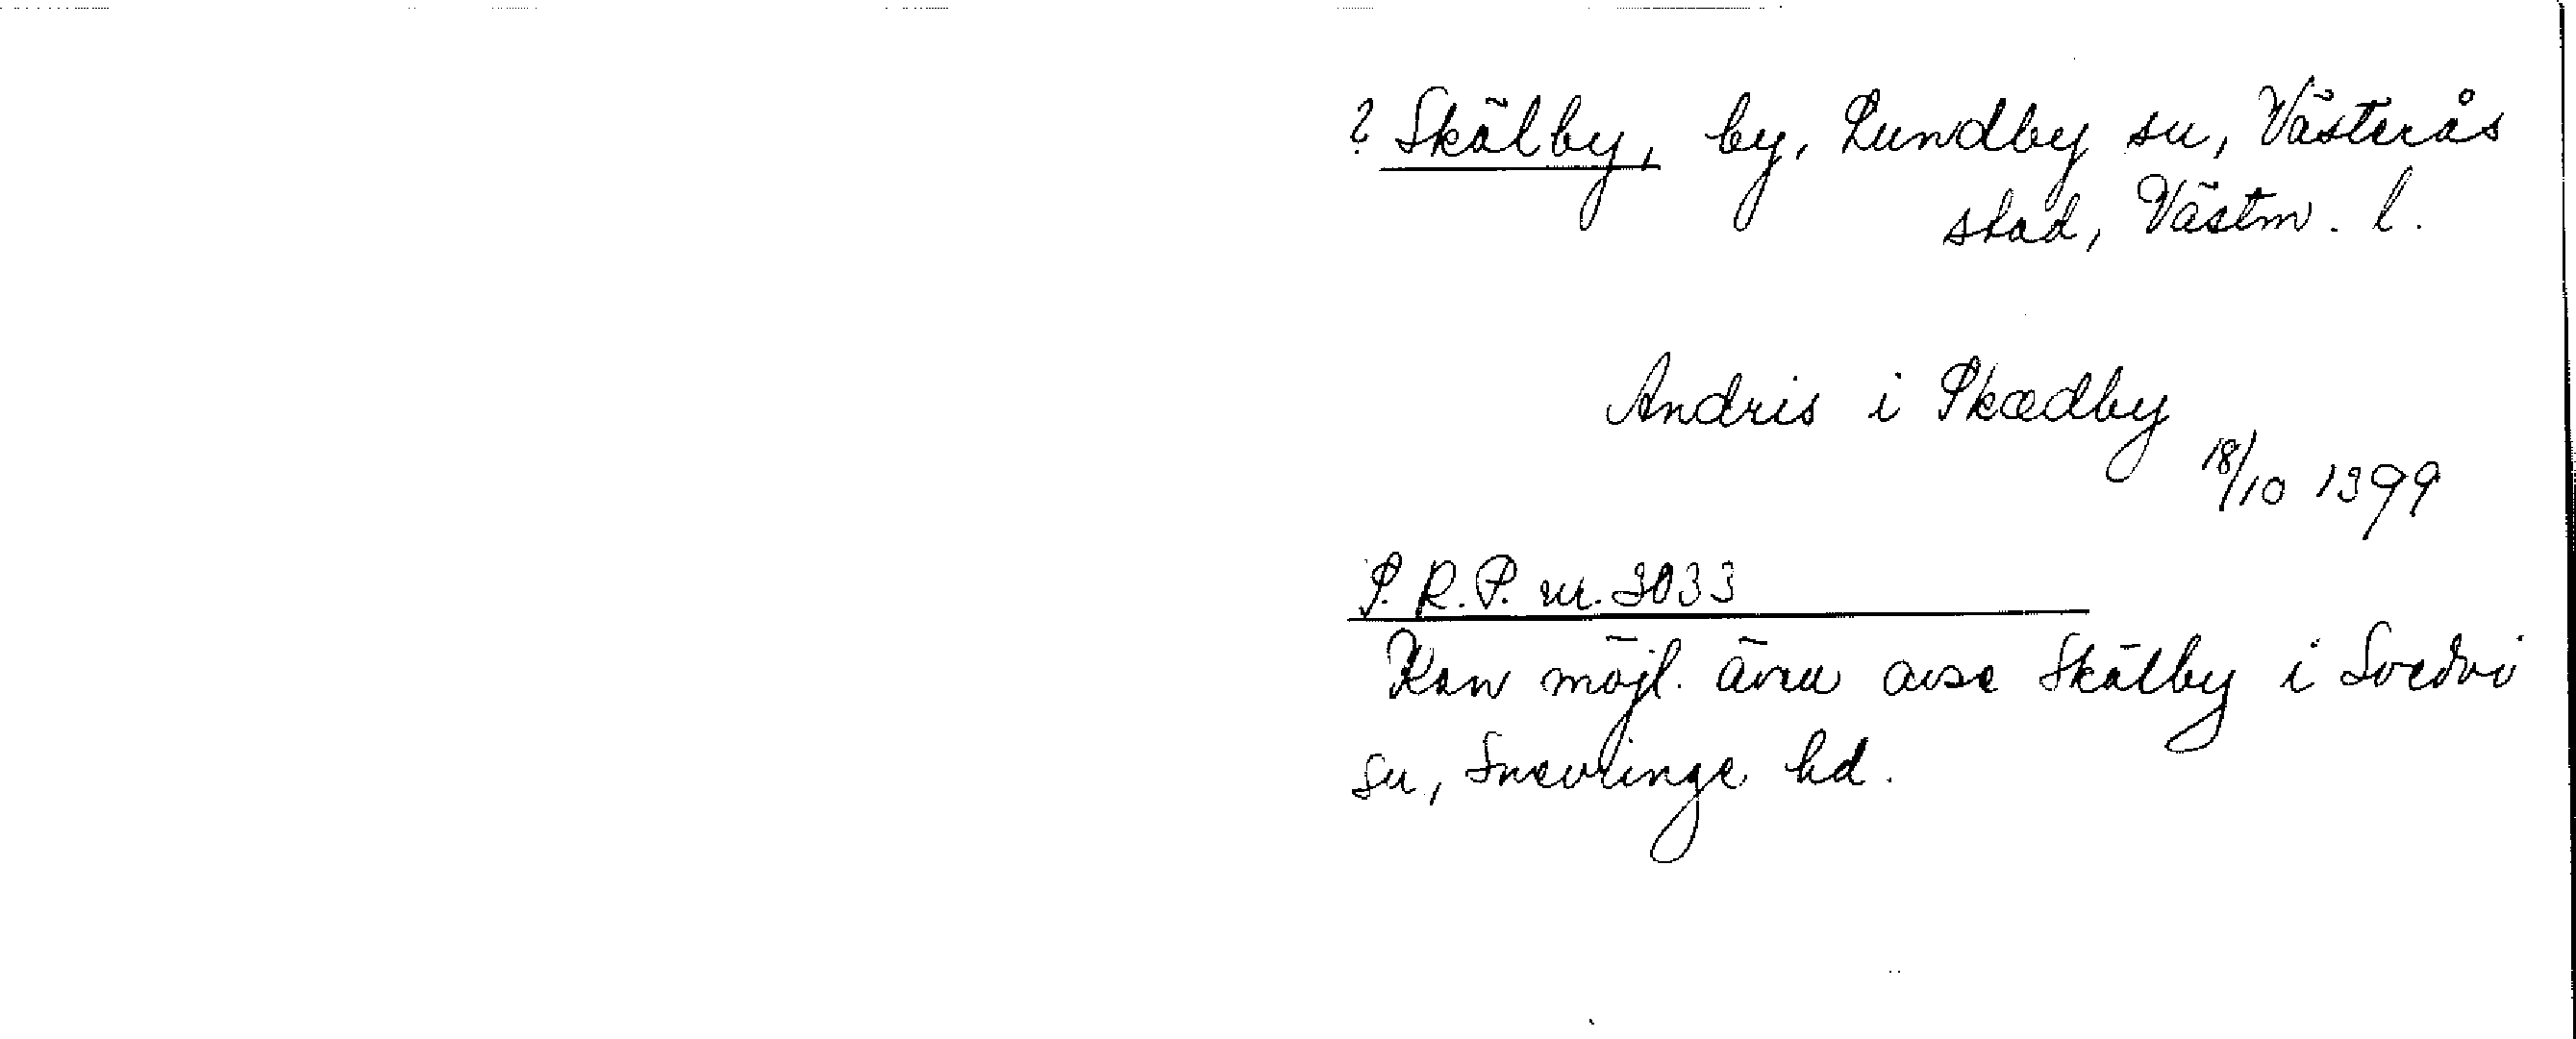 ? Skälby, by, Lundby sn, Västerås
stad, Västm. l.
Andris i Skædby
18/10 1399
S.R.P. nr. 3033
Kan möjl. även avse Skälby i Svedvi
sn, Snevringe hd.